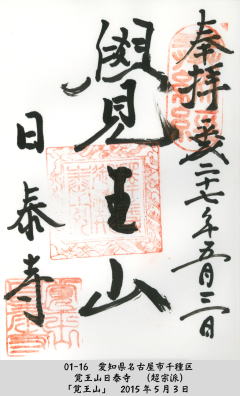 奉拝 二十七年五月三日
覺王山
日泰寺
01-16 愛知県名古屋市千種区
覚王山日泰寺 (超宗派)
「覚王山」 2015年5月3日